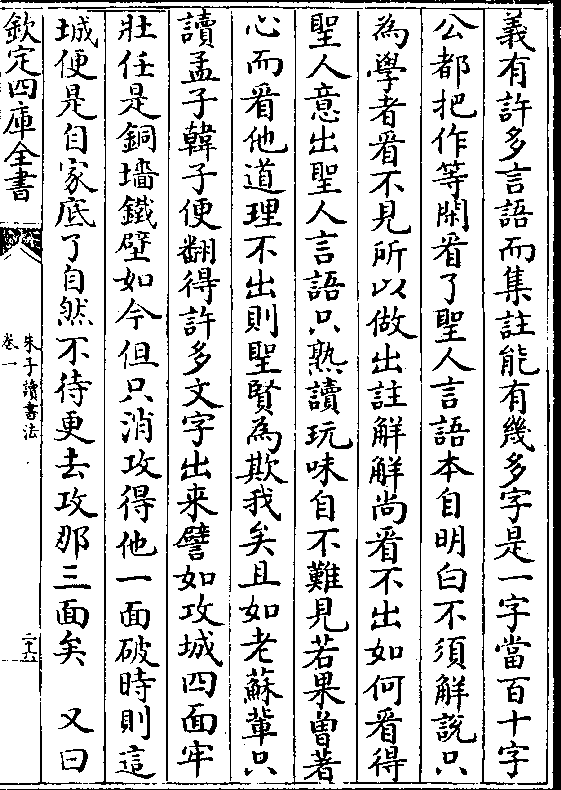 義有許多言語而集註能有幾多字是一字當百十字
公都把作等閑看了聖人言語本自明白不須解説只
為學者看不見所以做出註解解尚看不出如何看得
聖人意出聖人言語只熟讀玩味自不難見若果曽著
心而看他道理不出則聖賢為欺我矣且如老蘇輩只
讀孟子韓子便翻得許多文字出来譬如攻城四面牢
壯任是銅墻鐵壁如今但只消攻得他一面破時則這
城便是自家底了自然不待更去攻那三面矣　又曰
欽定四庫全書
朱子讀書法
卷一